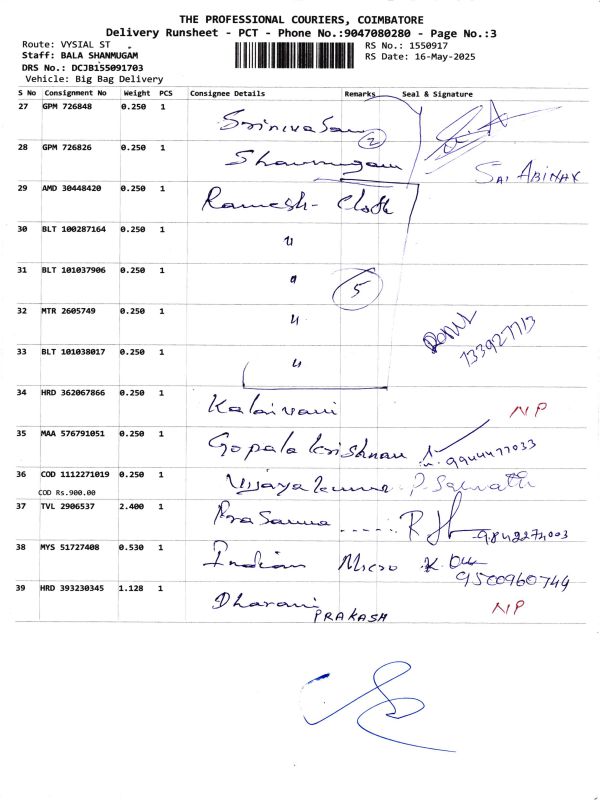 THE PROFESSIONAL COURIERS, COIMBATORE
Delivery Runsheet - PCT - Phone No.:9047080280 - Page No.:3
Route: VYSIAL ST
RS No.: 1550917
Staff: BALA SHANMUGAM
RS Date: 16-May-2025
DRS No.: DCJB155091703
Vehicle: Big Bag Delivery
S No Consignment No Weight PCS Consignee Details Remarks Seal & Signature
27 GPM 726848 0.250 1 Srinivasan 2
28 GPM 726826 0.250 1 Shanmugam SAI ABINAX
29 AMD 30448420 0.250 1 Ramesh - Cloth
30 BLT 100287164 0.250 1 "
31 BLT 101037906 0.250 1 " 5
32 MTR 2605749 0.250 1 "
33 BLT 101038017 0.250 1 "
34 HRD 362067866 0.250 1 Kalaivani NP
35 MAA 576791051 0.250 1 Gopala krishnan 9944477033
36 COD 1112271019 0.250 1 Vijayakumar
COD Rs.900.00
37 TVL 2906537 2.400 1 Prasanna ..... 9842274003
38 MYS 51727408 0.530 1 Indian Micro 9500960749
39 HRD 393230345 1.128 1 Dharani NP
PRAKASH